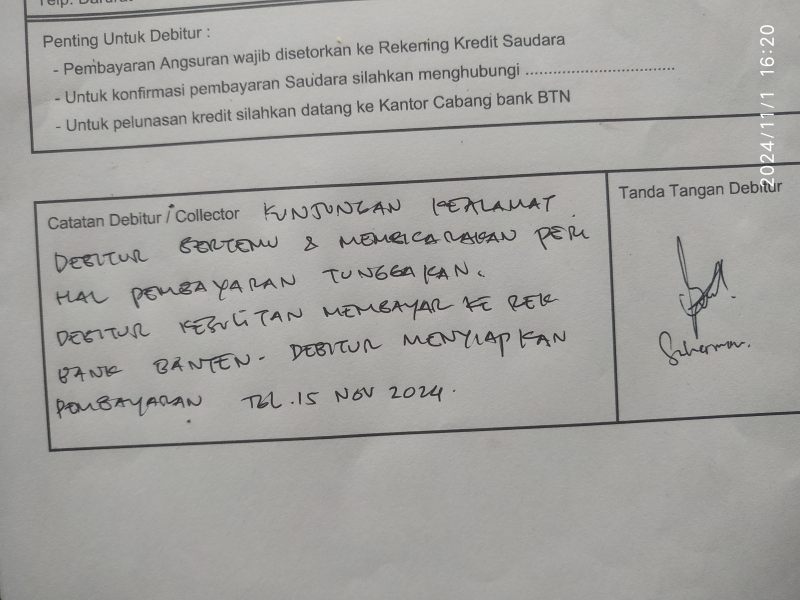 Telp. Darurat
Penting Untuk Debitur :
- Pembayaran Angsuran wajib disetorkan ke Rekening Kredit Saudara
- Untuk konfirmasi pembayaran Saudara silahkan menghubungi .................................
- Untuk pelunasan kredit silahkan datang ke Kantor Cabang bank BTN
2024/11/1 16:20
Catatan Debitur / Collector KUNJUNGAN KEALAMAT
DEBITUR BERTEMU & MEMBICARAKAN PERI
HAL PEMBAYARAN TUNGGAKAN.
DEBITUR KESULITAN MEMBAYAR KE REK
BANK BANTEN. DEBITUR MENYIAPKAN
PEMBAYARAN TGL. 15 NOV 2024.
Tanda Tangan Debitur
Suherman.